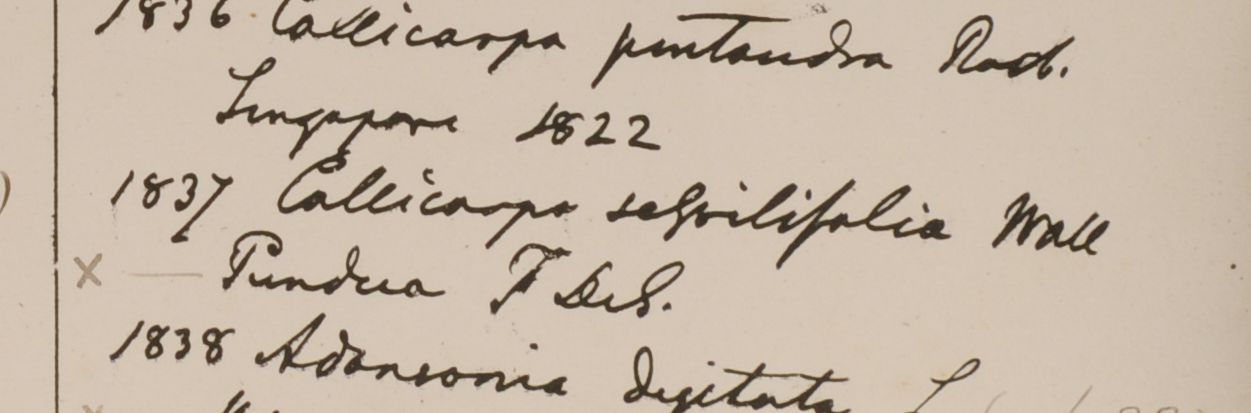 1836 Callicarpa pentandra Roxb.
Singapore 1822
1837 Callicarpa sessilifolia Wall
× — Pundua F De S.
1838 Adansonia digitata L